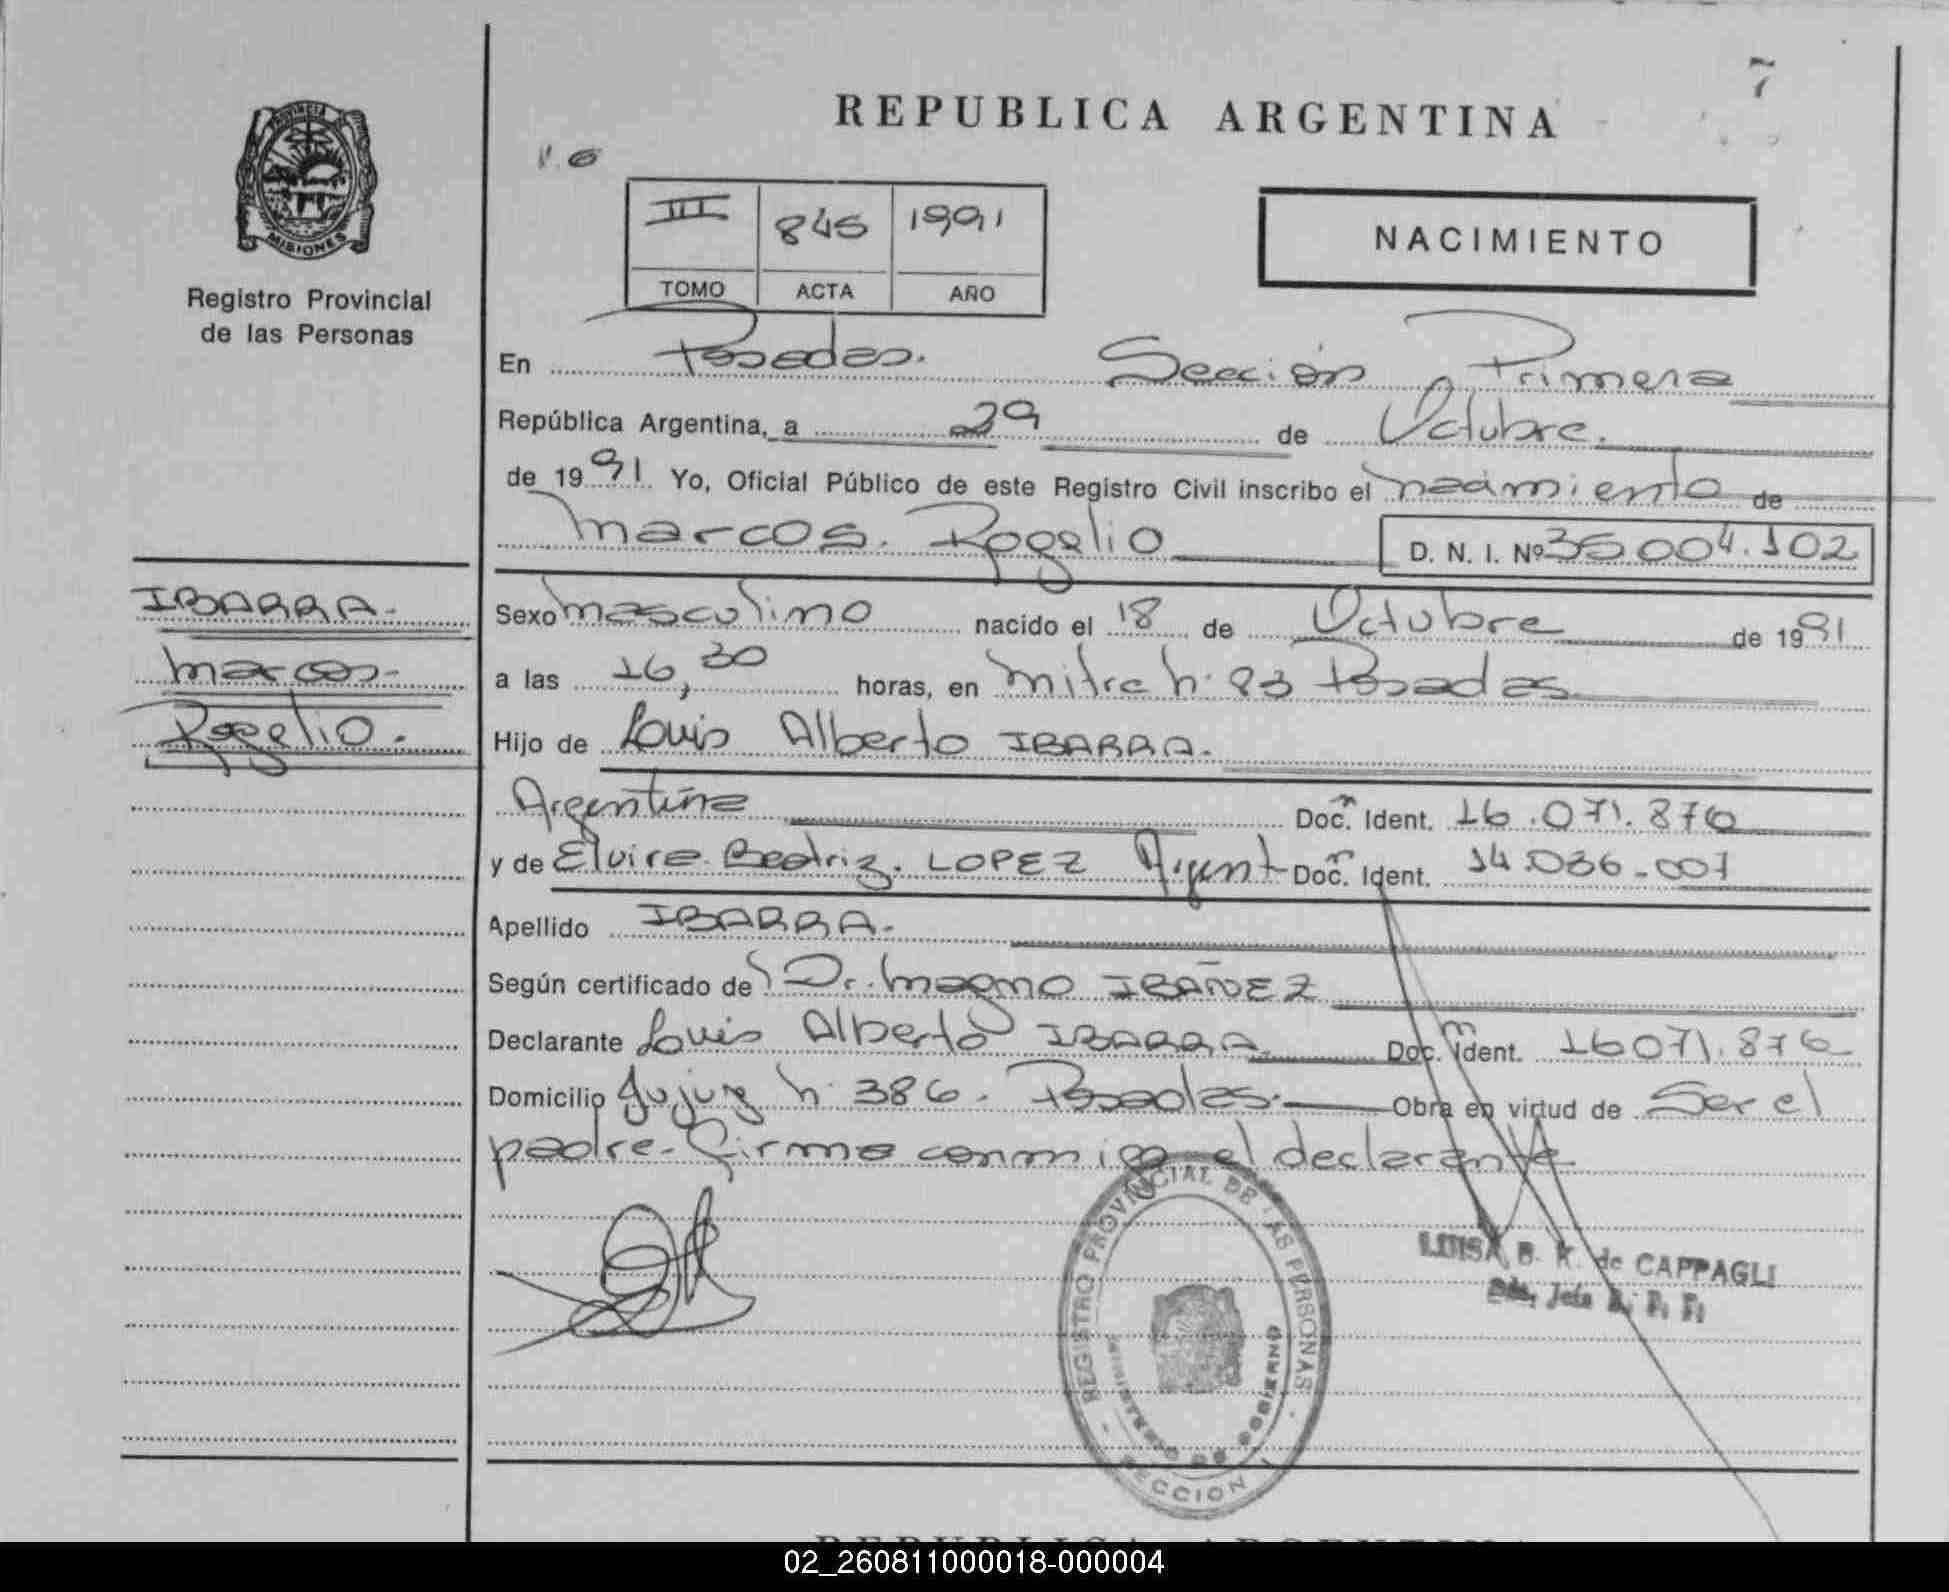 7
REPUBLICA ARGENTINA
PROVINCIA DE
MISIONES
Registro Provincial
de las Personas
III 845 1991
TOMO ACTA AÑO
NACIMIENTO
En Posadas. Sección Primera
República Argentina, a 29 de Octubre.
de 1991 Yo, Oficial Público de este Registro Civil inscribo el nacimiento de
Marcos Rogelio D. N. I. Nº 35.004.102
IBARRA.
Marcos
Rogelio.
Sexo masculino nacido el 18 de Octubre de 1991
a las 16,30 horas, en Mitre n° 83 Posadas
Hijo de Luis Alberto IBARRA.
Argentina Doc. Ident. 16.071.876
y de Elvira Beatriz. LOPEZ Argent Doc. Ident. 14.036.007
Apellido IBARRA.
Según certificado de Dr. Magno IBAÑEZ
Declarante Luis Alberto IBARRA Doc. Ident. 16071.876
Domicilio Jujuy n° 386. Posadas. Obra en virtud de Ser el
padre. Firma conmigo el declarante
REGISTRO PROVINCIAL DE LAS PERSONAS
MINISTERIO DE GOBIERNO
SECCION 1
LUISA B. K. de CAPPAGLI
REPUBLICA ARGENTINA
02_260811000018-000004